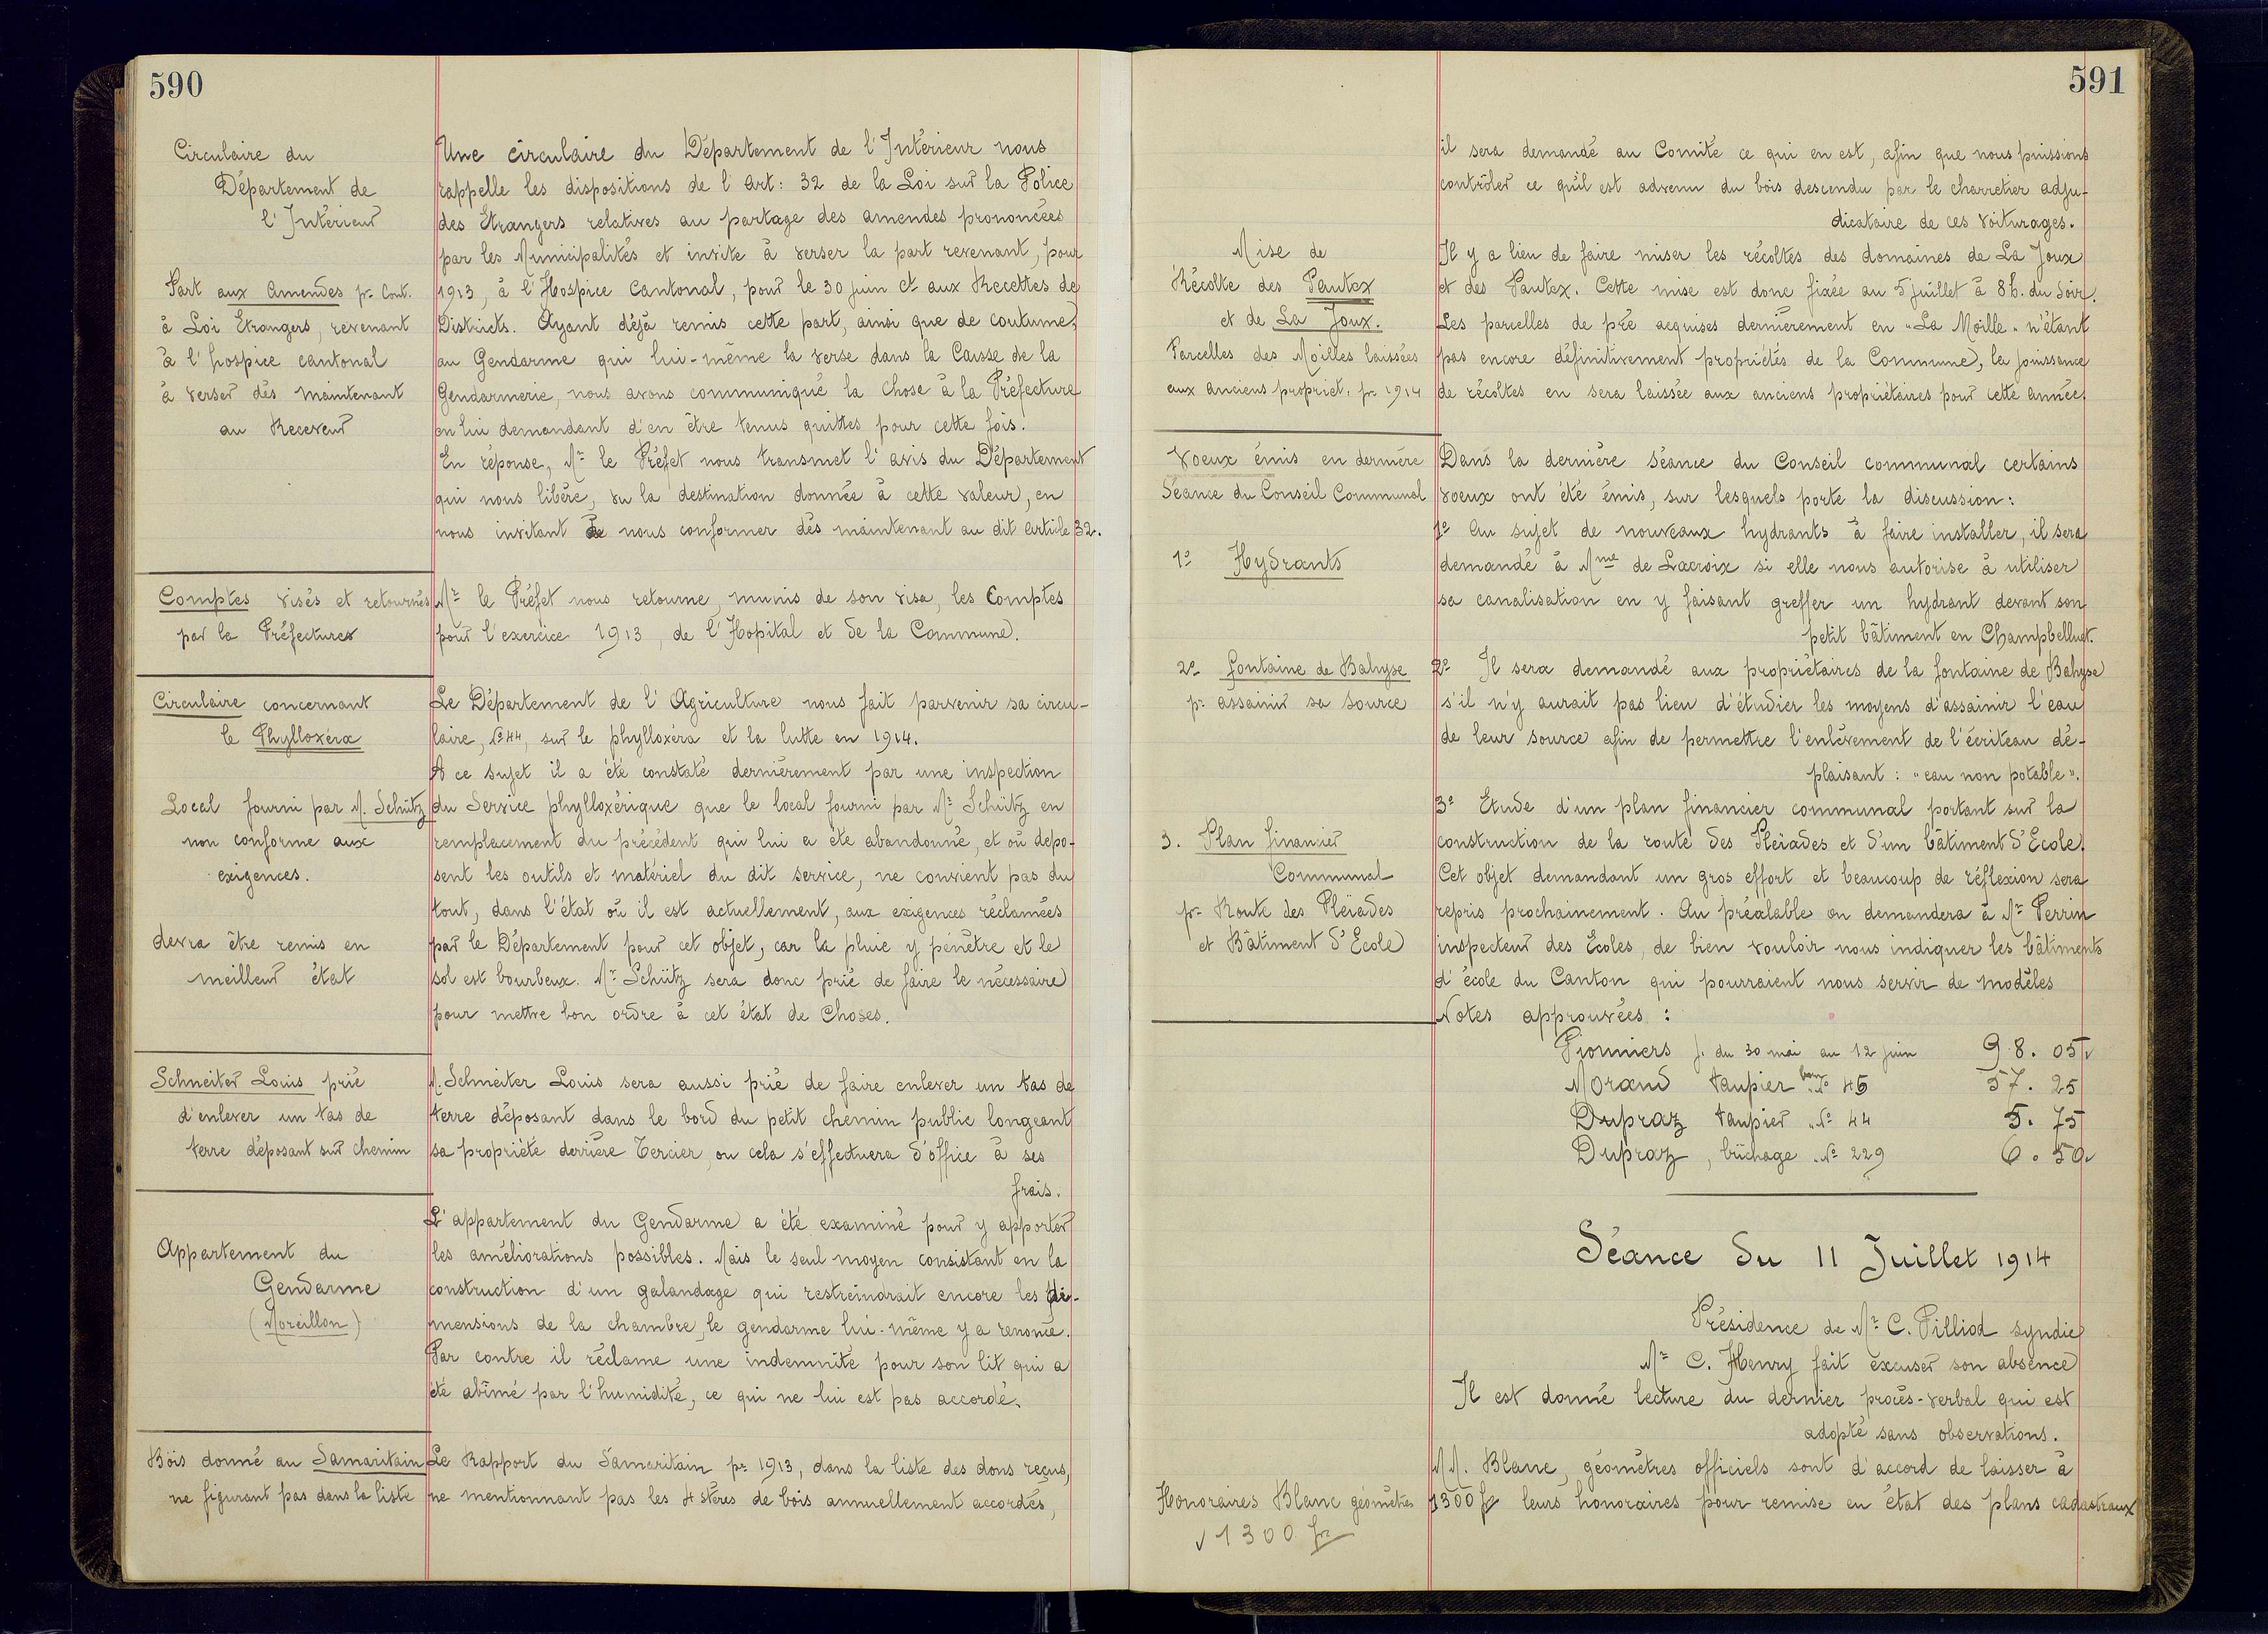 590
Circulaire du
Département de
l'Intérieur
Part aux Amendes pr. Cont.
à Loi Etrangers, revenant
à l'hospice cantonal
à verser dès maintenant
au Receveur
Une circulaire du Département de l'Intérieur nous
rappelle les dispositions de l'Art: 32 de la Loi sur la Police
des Etrangers relatives au partage des amendes prononcées
par les Municipalités et invite à verser la part revenant, pour
1913, à l'Hospice Cantonal, pour le 30 juin ct aux Recettes de
Districts. Ayant déjà remis cette part, ainsi que de coutume,
au Gendarme qui lui-même la verse dans la Caisse de la
Gendarmerie, nous avons communiqué la chose à la Préfecture
en lui demandant d'en être tenus quittes pour cette fois.
En réponse, Mr le Préfet nous transmet l'avis du Département
qui nous libère, vu la destination donnée à cette valeur, en
nous invitant à nous conformer dès maintenant au dit article 32.
Comptes visés et retournés
par la Préfecture
Mr le Préfet nous retourne, munis de son visa, les Comptes
pour l'exercice 1913, de l'Hopital et de la Commune.
Circulaire concernant
le Phylloxéra
Local fourni par M. Schütz
non conforme aux
exigences.
devra être remis en
meilleur état
Le Département de l'Agriculture nous fait parvenir sa circu-
laire, No 44, sur le phylloxéra et la lutte en 1914.
A ce sujet il a été constaté dernièrement par une inspection
du Service phylloxérique que le local fourni par Mr Schütz en
remplacement du précédent qui lui a été abandonné, et où dépo-
sent les outils et matériel du dit service, ne convient pas du
tout, dans l'état où il est actuellement, aux exigences réclamées
par le Département pour cet objet, car la pluie y pénètre et le
sol est bourbeux. Mr Schütz sera donc prié de faire le nécessaire
pour mettre bon ordre à cet état de choses.
Schneiter Louis prié
d'enlever un tas de
terre déposant sur chemin
M. Schneiter Louis sera aussi prié de faire enlever un tas de
terre déposant dans le bord du petit chemin public longeant
sa propriété derrière Tercier, ou cela s'effectuera d'office à ses
frais.
Appartement du
Gendarme
(Moreillon)
L'appartement du Gendarme a été examiné pour y apporter
les améliorations possibles. Mais le seul moyen consistant en la
construction d'un galandage qui restreindrait encore les di-
mensions de la chambre, le gendarme lui-même y a renoncé.
Par contre il réclame une indemnité pour son lit qui a
été abîmé par l'humidité, ce qui ne lui est pas accordé.
Bois donné au Samaritain
ne figurant pas dans la liste
Le Rapport du Samaritain pr 1913, dans la liste des dons reçus,
ne mentionnant pas les 4 stères de bois annuellement accordés,
591
il sera demandé au Comité ce qui en est, afin que nous puissions
contrôler ce qu'il est advenu du bois descendu par le charretier adju-
dicataire de ces voiturages.
Mise de
Récolte des Pautex
et de La Joux.
Parcelles des Moilles laissées
aux anciens propriét. pr 1914
Il y a lieu de faire miser les récoltes des domaines de La Joux
et des Pautex. Cette mise est donc fixée au 5 juillet à 8 h. du soir.
Les parcelles de pré acquises dernièrement en "La Moille" n'étant
pas encore définitivement propriétés de la Commune, la jouissance
de récoltes en sera laissée aux anciens propriétaires pour cette année.
Voeux émis en dernière
Séance du Conseil Communal
Dans la dernière Séance du Conseil communal certains
voeux ont été émis, sur lesquels porte la discussion:
1o Hydrants
1o Au sujet de nouveaux hydrants à faire installer, il sera
demandé à Mme de Lacroix si elle nous autorise à utiliser
sa canalisation en y faisant greffer un hydrant devant son
petit bâtiment en Champbelluet.
2o fontaine de Bahyse
pr assainir sa source
2o Il sera demandé aux propriétaires de la fontaine de Bahyse
s'il n'y aurait pas lieu d'étudier les moyens d'assainir l'eau
de leur source afin de permettre l'enlèvement de l'écriteau dé-
plaisant: "eau non potable".
3. Plan financier
Communal
pr Route des Pléiades
et Bâtiment d'Ecole
3o Etude d'un plan financier communal portant sur la
construction de la route des Pléiades et d'un bâtiment d'Ecole.
Cet objet demandant un gros effort et beaucoup de réflexion sera
repris prochainement. Au préalable on demandera à Mr Perrin
inspecteur des Ecoles, de bien vouloir nous indiquer les bâtiments
d'école du Canton qui pourraient nous servir de modèles
Notes approuvées:
Pionniers j. du 30 mai au 12 juin 98.05
Morand taupier bon No 45 57.25
Dupraz taupier " No 44 5.75
Dupraz, bûchage " No 229 6.50
Séance du 11 Juillet 1914
Présidence de Mr C. Pilliod syndic
Mr C. Henry fait excuser son absence
Il est donné lecture du dernier procès-verbal qui est
adopté sans observations.
Honoraires Blanc géomètres
1300 fr
MM. Blanc, géomètres officiels sont d'accord de laisser à
1300 fr leurs honoraires pour remise en état des plans cadastraux